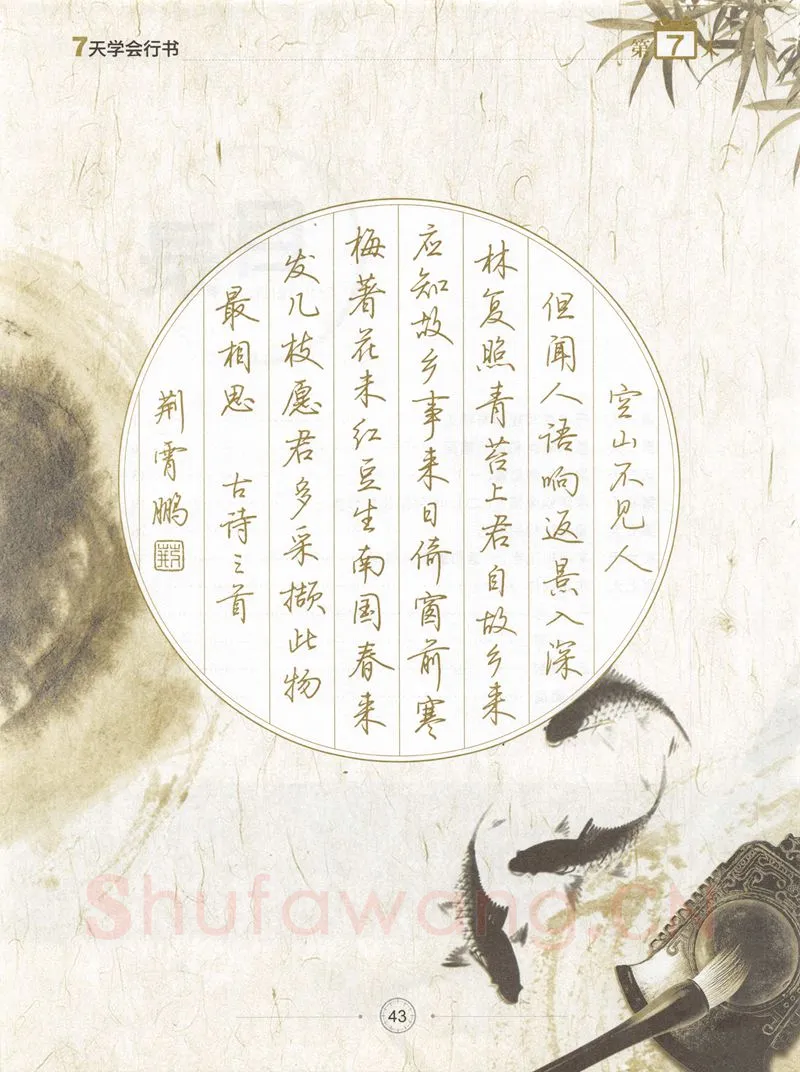 7天学会行书
第7天
空山不见人
但闻人语响返景入深
林复照青苔上君自故乡来
应知故乡事来日倚窗前寒
梅著花未红豆生南国春来
发几枝愿君多采撷此物
最相思 古诗三首
荆霄鹏
荆
Shufawang.CN
43